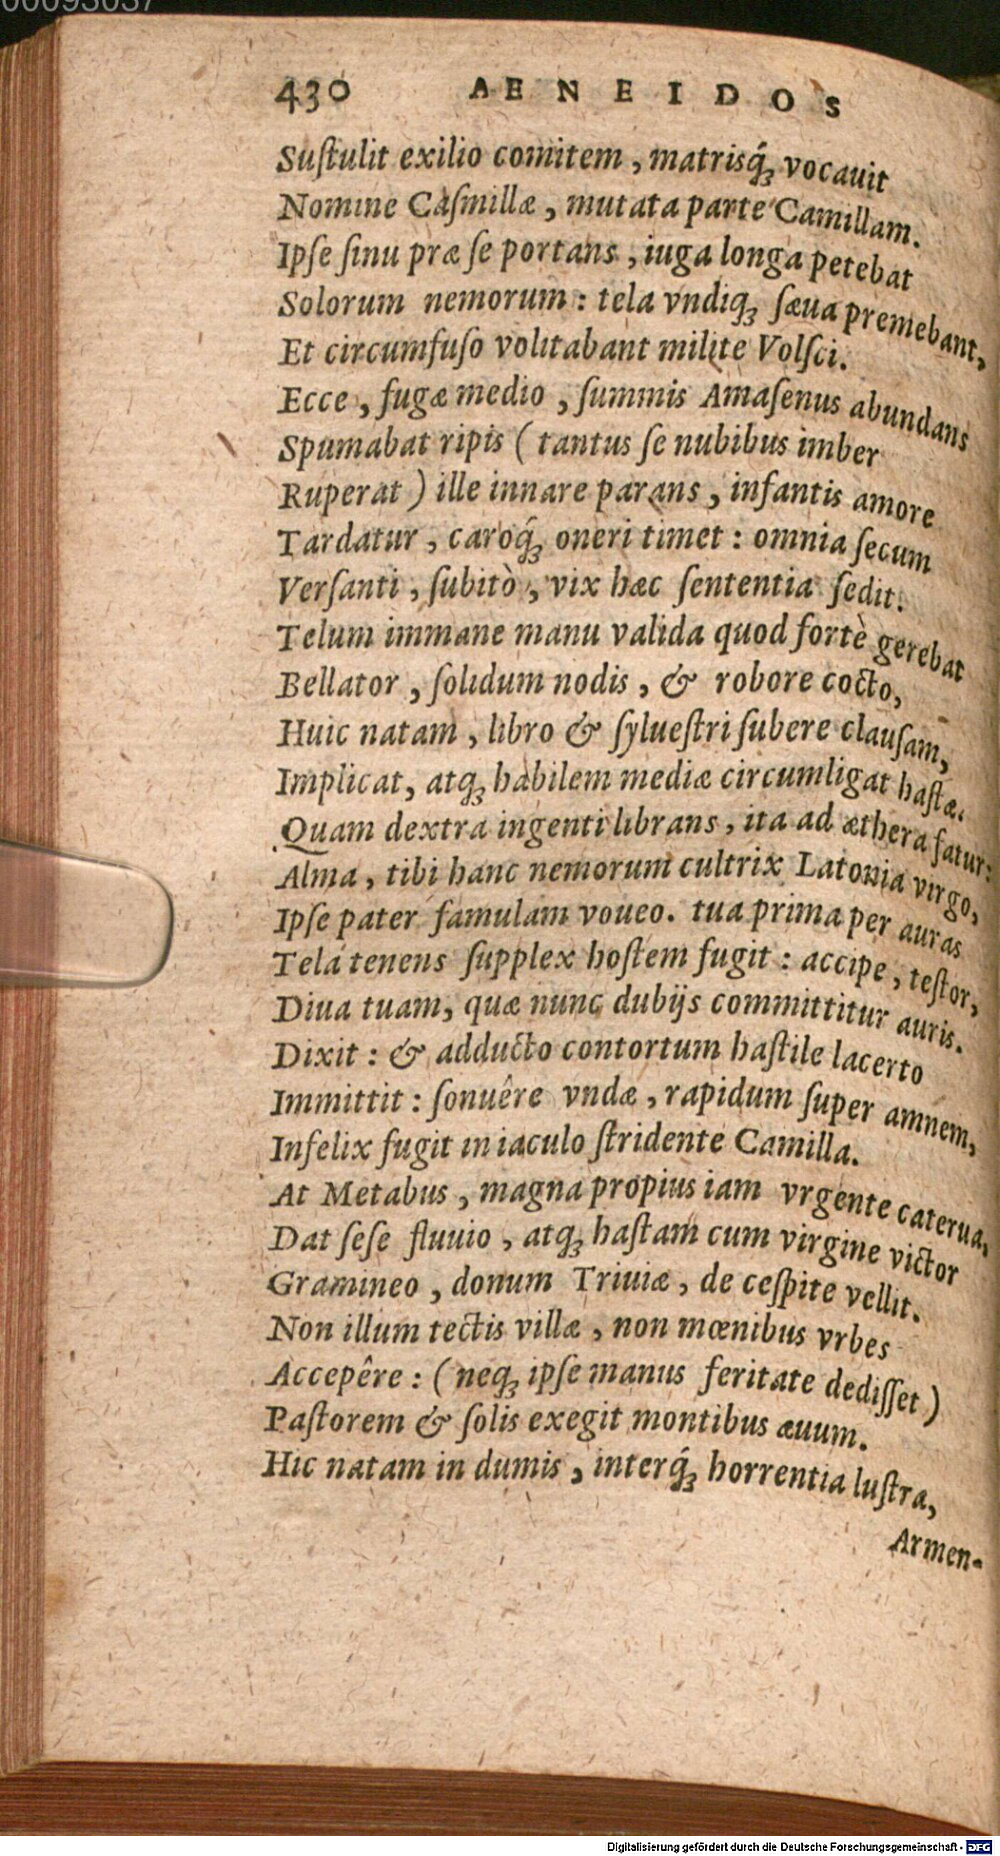 00093037
430 AENEIDOS
Suſtulit exilio comitem, matrisq́ꝫ vocauit
Nomine Caſmillæ, mutata parte Camillam.
Ipſe ſinu præ ſe portans, iuga longa petebat
Solorum nemorum: tela vndiqꝫ ſæua premebant,
Et circumfuſo volitabant milite Volſci.
Ecce, fugæ medio, ſummis Amaſenus abundans
Spumabat ripis (tantus ſe nubibus imber
Ruperat) ille innare parans, infantis amore
Tardatur, caroq́ꝫ oneri timet: omnia ſecum
Verſanti, ſubitò, vix hæc ſententia ſedit.
Telum immane manu valida quod fortè gerebat
Bellator, ſolidum nodis, & robore cocto,
Huic natam, libro & ſylueſtri ſubere clauſam,
Implicat, atqꝫ habilem mediæ circumligat haſtæ.
Quam dextra ingenti librans, ita ad æthera fatur:
Alma, tibi hanc nemorum cultrix Latonia virgo,
Ipſe pater famulam voueo. tua prima per auras
Tela tenens ſupplex hoſtem fugit: accipe, teſtor,
Diua tuam, quæ nunc dubijs committitur auris.
Dixit: & adducto contortum haſtile lacerto
Immittit: ſonuêre vndæ, rapidum ſuper amnem,
Infelix fugit in iaculo ſtridente Camilla.
At Metabus, magna propius iam vrgente caterua,
Dat ſeſe fluuio, atqꝫ haſtam cum virgine victor
Gramineo, donum Triuiæ, de ceſpite vellit.
Non illum tectis villæ, non mœnibus vrbes
Accepêre: (neqꝫ ipſe manus feritate dediſſet)
Paſtorem & ſolis exegit montibus æuum.
Hic natam in dumis, interq́ꝫ horrentia luſtra,
Armen-
Digitalisierung gefördert durch die Deutsche Forschungsgemeinschaft - DFG